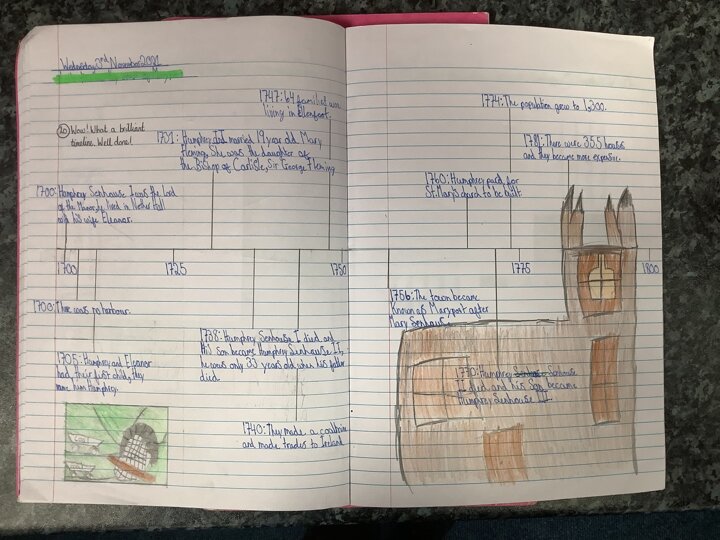 Wednesday 3rd November 2021
1747: 64 families were
living in Ellenfoot.
Wow! What a brilliant
timeline. Well done!
1731: Humphrey II married 19 year old Mary
Fleming. She was the daughter of
the Bishop of Carlisle, Sir George Fleming
1700: Humphrey Senhouse I was the lord
of the Manor, he lived in Nether Hall
with his wife Eleanor.
1700
1725
1750
1700: There was no harbour.
1705: Humphrey and Eleanor
had their first child, they
name him Humphrey.
1738: Humphrey Senhouse I died and
his son became Humphrey Senhouse II,
he was only 33 years old when his father
died.
1740: They made a coalmine
and made trades to Ireland
1774: The population grew to 1,300.
1781: There were 355 houses
and they became more expensive.
1760: Humphrey paid for
St. Mary's church to be built.
1775
1800
1756: The town became
Known as Maryport after
Mary Senhouse.
1770: Humphrey Senhouse
II died and his son became
Humphrey Senhouse III